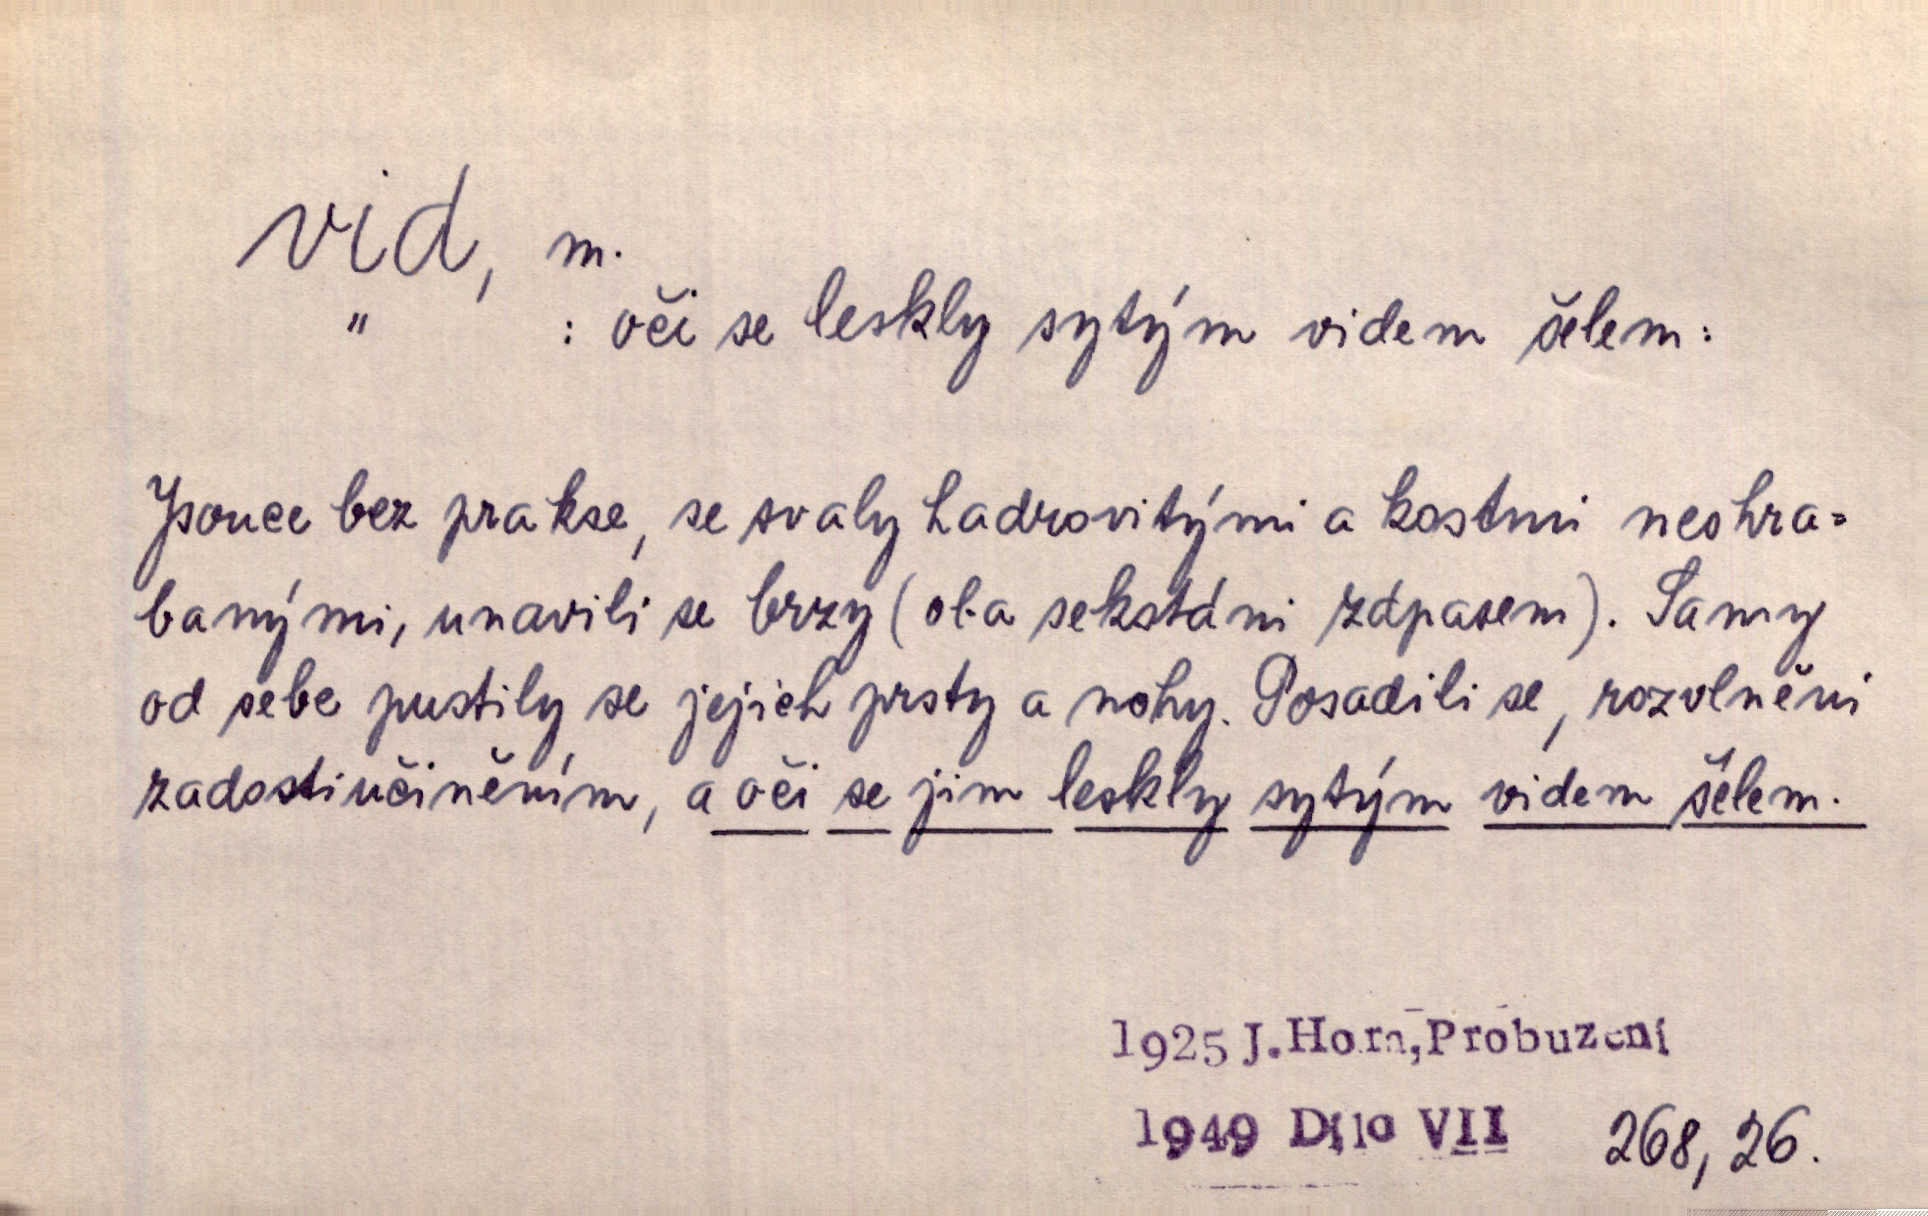 vid, m.
" : oči se leskly sytým videm šelem:
Jsouce bez prakse, se svaly hadrovitými a kostmi neohra=
banými, unavili se brzy (oba sekstáni zápasem). Samy
od sebe pustily se jejich prsty a nohy. Posadili se, rozvlněni
zadostiučiněním, a oči se jim leskly sytým videm šelem.
1925 J. Hora, Probuzení
1949 Dílo VII 268, 26.